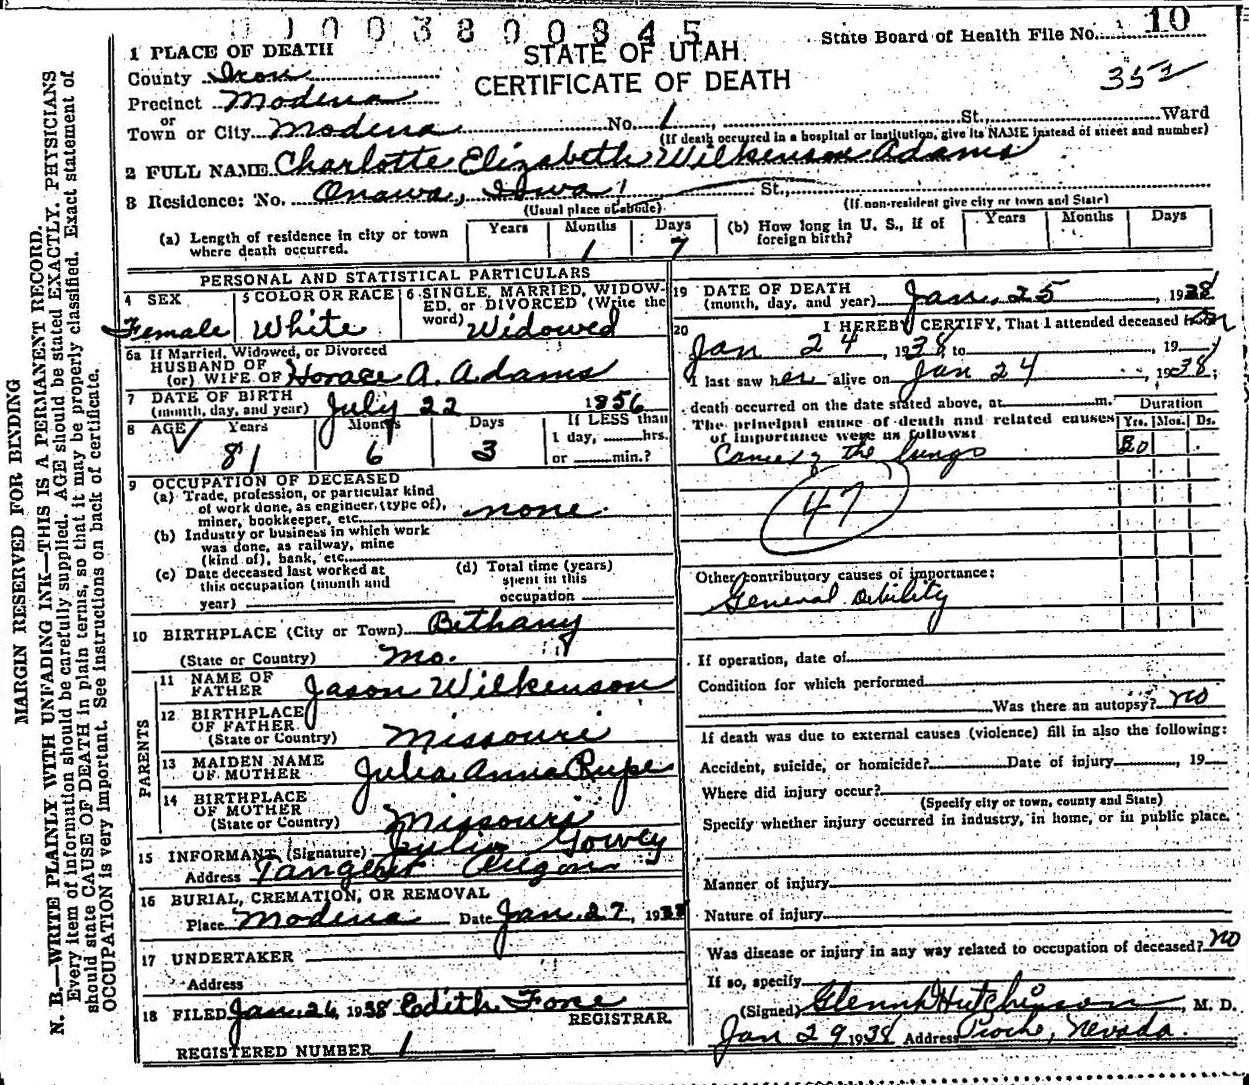 0 1 0 0 3 8 0 0 8 4 5
State Board of Health File No. 10
STATE OF UTAH
CERTIFICATE OF DEATH
352
1 PLACE OF DEATH
County Iron
Precinct Modena
or
Town or City Modena No. 1, St., Ward
(If death occurred in a hospital or institution, give its NAME instead of street and number)
2 FULL NAME Charlotte Elizabeth Wilkenson Adams
3 Residence: No. Onawa, Iowa St.,
(Usual place of abode) (If non-resident give city or town and State)
(a) Length of residence in city or town where death occurred. Years Months 1 Days 7
(b) How long in U. S., if of foreign birth? Years Months Days
PERSONAL AND STATISTICAL PARTICULARS
4 SEX Female
5 COLOR OR RACE White
6 SINGLE, MARRIED, WIDOWED, or DIVORCED (Write the word) Widowed
6a If Married, Widowed, or Divorced
HUSBAND OF
(or) WIFE OF Horace A. Adams
7 DATE OF BIRTH
(month, day, and year) July 22 1856
8 AGE Years 81 Months 6 Days 3
If LESS than
1 day, hrs.
or min.?
9 OCCUPATION OF DECEASED
(a) Trade, profession, or particular kind
of work done, as engineer, (type of),
miner, bookkeeper, etc. none
(b) Industry or business in which work
was done, as railway, mine
(kind of), bank, etc.
(c) Date deceased last worked at
this occupation (month and
year)
(d) Total time (years)
spent in this
occupation
10 BIRTHPLACE (City or Town) Bethany
(State or Country) Mo.
PARENTS
11 NAME OF
FATHER Jason Wilkenson
12 BIRTHPLACE
OF FATHER
(State or Country) Missouri
13 MAIDEN NAME
OF MOTHER Julia Anna Rupe
14 BIRTHPLACE
OF MOTHER
(State or Country) Missouri
15 INFORMANT (Signature) Julia Gowey
Address Tangent Oregon
16 BURIAL, CREMATION, OR REMOVAL
Place Modena Date Jan. 27, 1938
17 UNDERTAKER
Address
18 FILED Jan. 26, 1938 Edith Fore
REGISTRAR.
REGISTERED NUMBER 1
19 DATE OF DEATH
(month, day, and year) Jan. 25, 1938
20 I HEREBY CERTIFY, That I attended deceased from
Jan 24, 1938, to , 19
I last saw her alive on Jan 24, 1938;
death occurred on the date stated above, at m.
The principal cause of death and related causes
of importance were as follows:
Duration
Yrs. Mos. Ds.
Cancer of the lungs
47
Other contributory causes of importance:
General debility
If operation, date of
Condition for which performed
Was there an autopsy? no
If death was due to external causes (violence) fill in also the following:
Accident, suicide, or homicide? Date of injury , 19
Where did injury occur?
(Specify city or town, county and State)
Specify whether injury occurred in industry, in home, or in public place.
Manner of injury
Nature of injury
Was disease or injury in any way related to occupation of deceased? no
If so, specify
(Signed) Glenn Hutchinson, M. D.
Jan 29 1938 Address Pioche, Nevada.
MARGIN RESERVED FOR BINDING
N. B.—WRITE PLAINLY WITH UNFADING INK—THIS IS A PERMANENT RECORD.
Every item of information should be carefully supplied. AGE should be stated EXACTLY. PHYSICIANS
should state CAUSE OF DEATH in plain terms, so that it may be properly classified. Exact statement of
OCCUPATION is very important. See instructions on back of certificate.